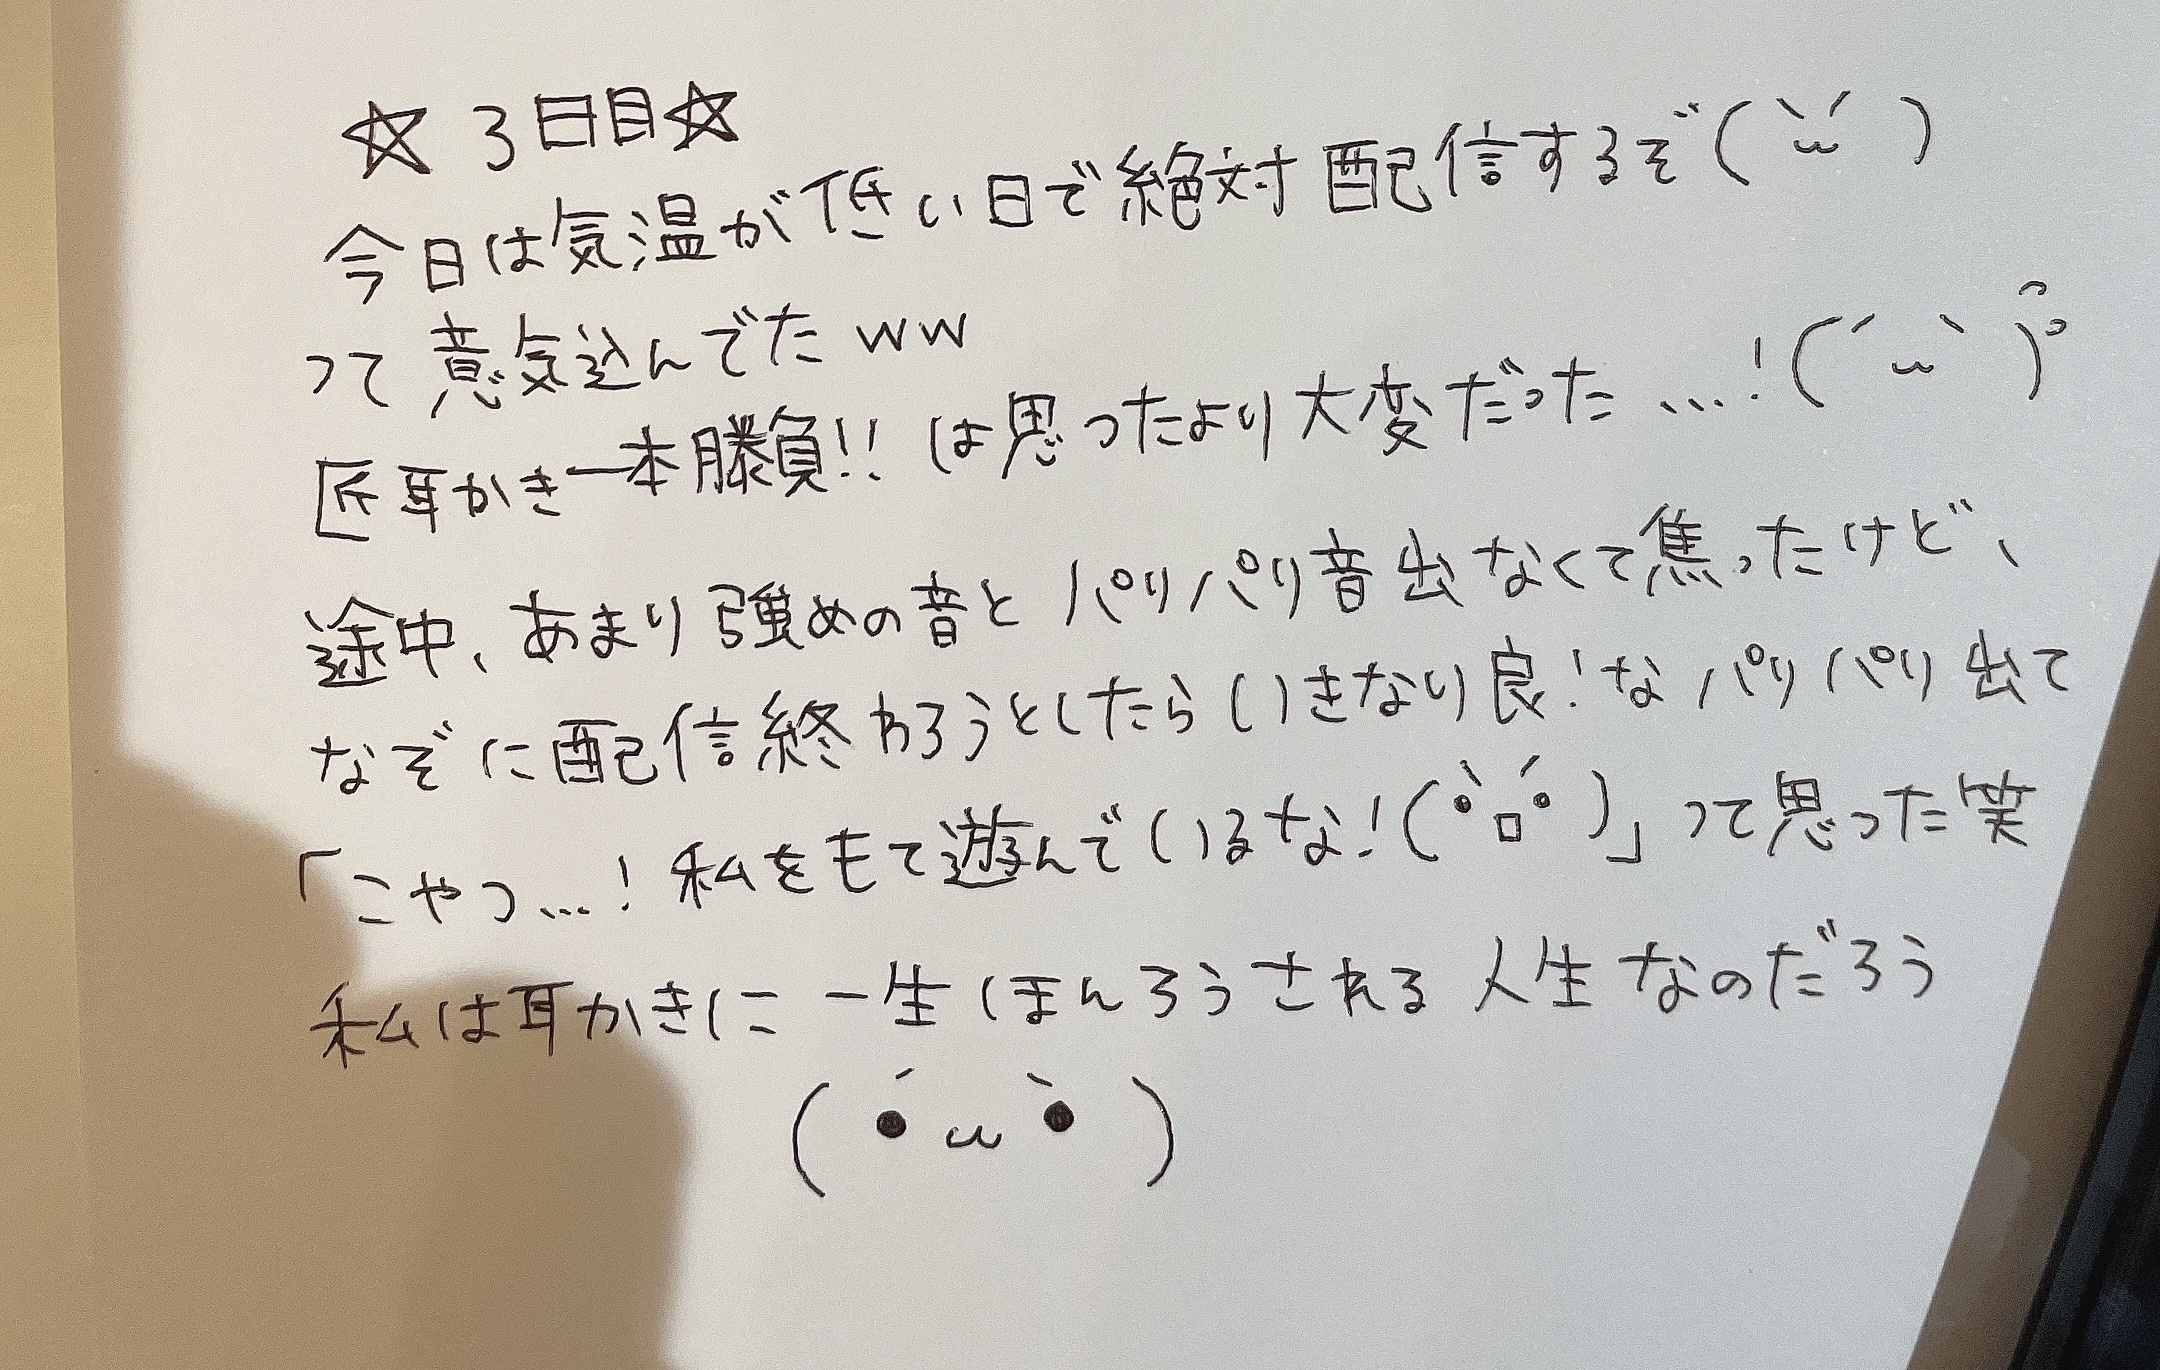 ☆3日目☆
今日は気温が低い日で絶対配信するぞ(`ω´)
って意気込んでたww
匠耳かき一本勝負!!は思ったより大変だった…!(´ω`)
途中、あまり強めの音とパリパリ音出なくて焦ったけど、
なぞに配信終わろうとしたらいきなり良!なパリパリ出て
「こやつ…!私をもて遊んでいるな!(•̀ロ•́)」って思った笑
私は耳かきに一生ほんろうされる人生なのだろう
(•́ω•̀)